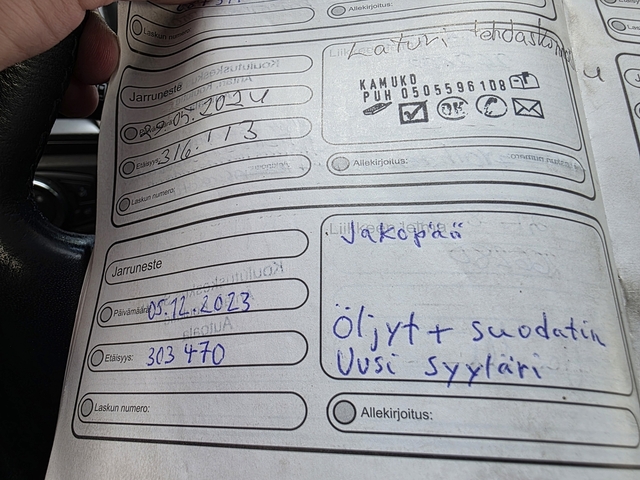 Laskun numero:
Allekirjoitus:
Laturi tehdaskunno
Jarruneste
KAMUKO
PUH 0505596108
OK
29.05.2024
Etäisyys: 316.113
Laskun numero:
Allekirjoitus:
Jakopää
Jarruneste
Päivämäärä: 05.12.2023
Öljyt + suodatin
Etäisyys: 303 470
Uusi syyläri
Laskun numero:
Allekirjoitus: